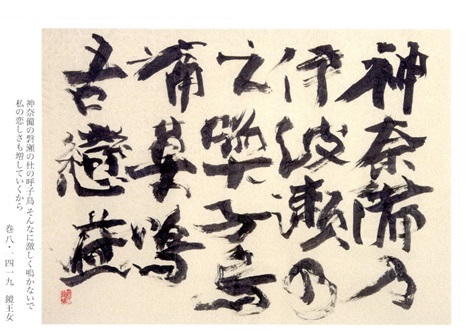 神奈備乃
伊波瀬乃
之喚子鳥
痛莫鳴
吾戀益
神奈備の磐瀬の杜の呼子鳥 そんなに激しく鳴かないで
私の恋しさも増していくから
巻八・一四一九 鏡王女